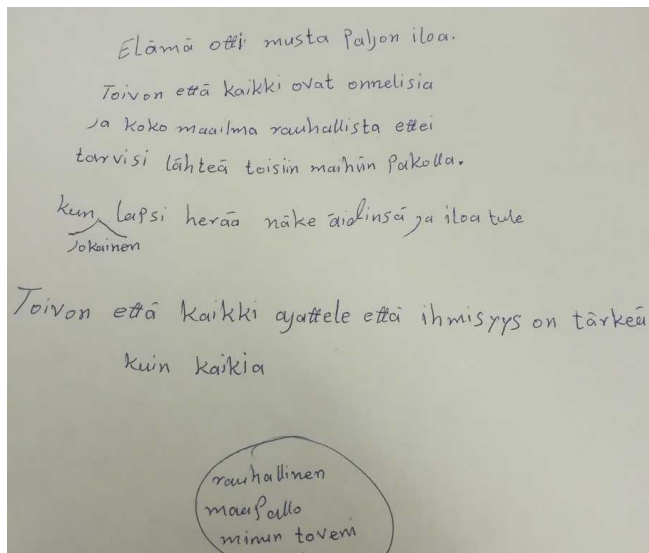 Elämä otti musta paljon iloa.
Toivon että kaikki ovat onnelisia
ja koko maailma rauhallista ettei
tarvisi lähteä toisiin maihiin pakolla.
kun lapsi herää näke äidinsä ja iloa tule
jokainen
Toivon että kaikki ajattele että ihmisyys on tärkeä
kuin kaikia
rauhallinen
maapallo
minun toveni